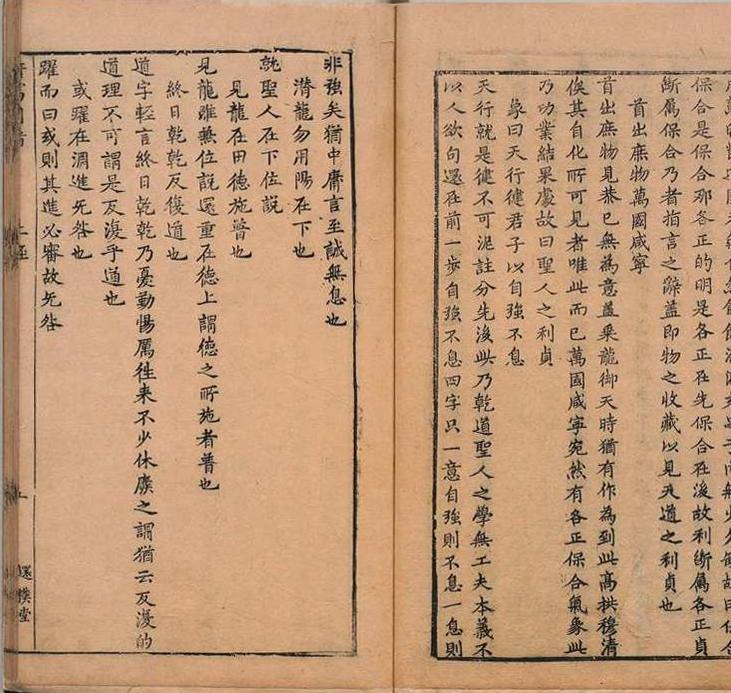 保合是保合那各正的明是各正在先保合在後故利斷屬各正貞
斷屬保合乃者指言之辭蓋即物之收藏以見天道之利貞也
首出庶物萬國咸寧
首出庶物見恭己無為意蓋乘龍御天時猶有作為到此高拱穆清
俟其自化所可見者唯此而已萬國咸寧宛然有各正保合氣象此
乃功業結果處故曰聖人之利貞
象曰天行健君子以自強不息
天行就是健不可泥註分先後此乃乾道聖人之學無工夫本義不
以人欲句還在前一步自強不息四字只一意自強則不息一息則
非強矣猶中庸言至誠無息也
潛龍勿用陽在下也
就聖人在下位說
見龍在田德施普也
見龍雖無位說還重在德上謂德之所施者普也
終日乾乾反復道也
道字輕言終日乾乾乃憂勤惕厲往來不少休廢之謂猶云反復的
道理不可謂是反復乎道也
或躍在淵進无咎也
躍而曰或則其進必審故无咎
上經
還樸堂